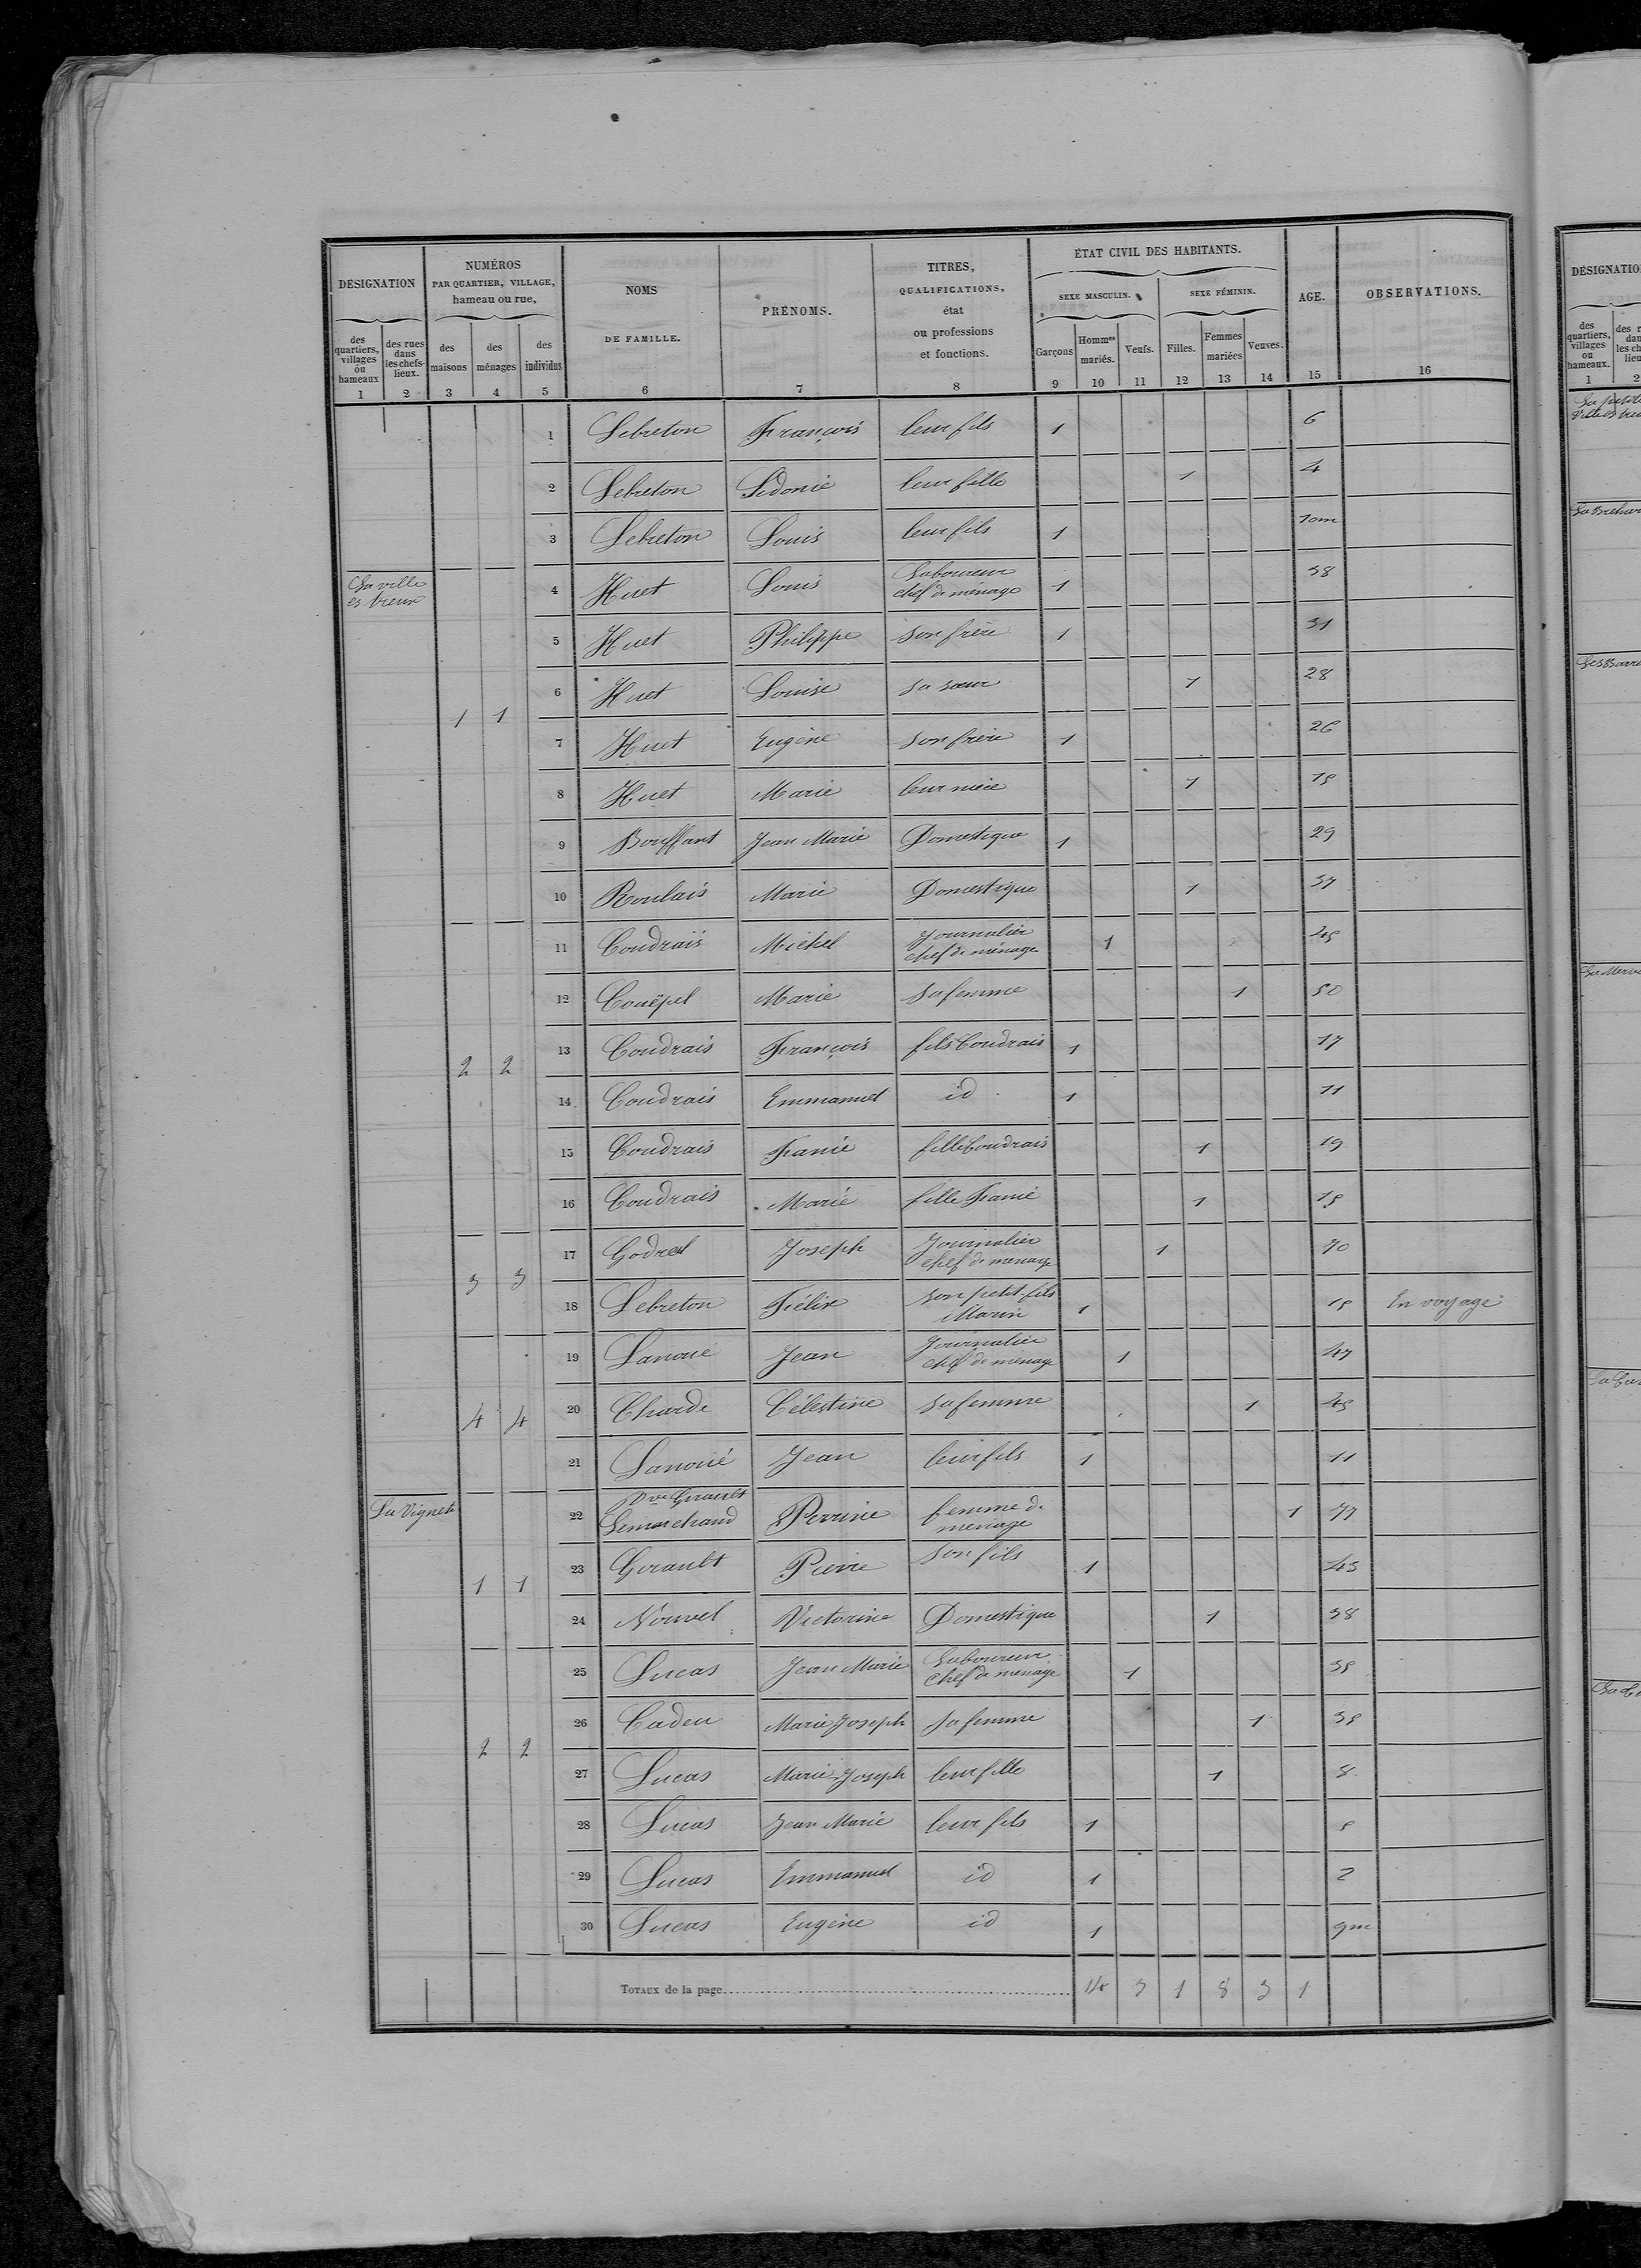 DÉSIGNATION
NUMÉROS
PAR QUARTIER, VILLAGE,
hameau ou rue,
NOMS
DE FAMILLE.
PRÉNOMS.
TITRES,
QUALIFICATIONS,
état
ou professions
et fonctions.
ÉTAT CIVIL DES HABITANTS.
SEXE MASCULIN. SEXE FÉMININ.
AGE.
OBSERVATIONS.
des quartiers, villages ou hameaux
des rues dans les chefs-lieux.
des maisons
des ménages
des individus
Garçons
Hommes mariés.
Veufs.
Filles.
Femmes mariées
Veuves.
1 2 3 4 5 6 7 8 9 10 11 12 13 14 15 16
1 Lebreton François leur fils 1 6
2 Lebreton Sidonie leur fille 1 4
3 Lebreton Louis leur fils 1 10m
La ville
es treux
4 Huet Louis Laboureur chef de ménage 1 38
5 Huet Philippe son frère 1 31
6 Huet Louise sa sœur 1 28
1 1
7 Huet Eugène son frère 1 26
8 Huet Marie leur nièce 1 15
9 Bouffant Jean Marie Domestique 1 29
10 Roulais Marie Domestique 1 37
11 Coudrais Michel Journalier chef de ménage 1 45
12 Couëpel Marie sa femme 1 50
13 Coudrais François fils Coudrais 1 17
2 2
14 Coudrais Emmanuel id 1 11
15 Coudrais Fanie fille Coudrais 1 19
16 Coudrais Marie fille Fanie 1 15
17 Godrel Joseph Journalier chef de ménage 1 70
3 3
18 Lebreton Félix son petit fils Marin 1 15 En voyage
19 Lanoué Jean Journalier chef de ménage 1 47
20 Charde Célestine sa femme 1 45
4 4
21 Lanoué Jean leur fils 1 11
La Vignette
22 Vve Girault Lemarchand Perrine femme de ménage 1 77
23 Girault Pierre son fils 1 43
1 1
24 Nouvel Victorine Domestique 1 38
25 Lucas Jean Marie Laboureur Chef de ménage 1 35
26 Cadeu Marie Joseph sa femme 1 35
2 2
27 Lucas Marie Joseph leur fille 1 8
28 Lucas Jean Marie leur fils 1 5
29 Lucas Emmanuel id 1 2
30 Lucas Eugène id 1 9m
TOTAUX de la page 14 3 1 8 3 1
DÉSIGNATIO
des quartiers, villages ou hameaux.
1 2